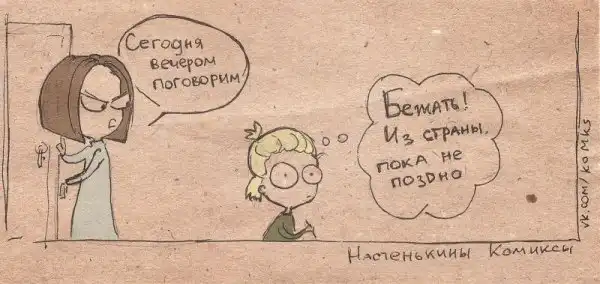 Сегодня
вечером
поговорим
Бежать!
Из страны,
пока не
поздно
Настенькины Комиксы
vk.com/komiks